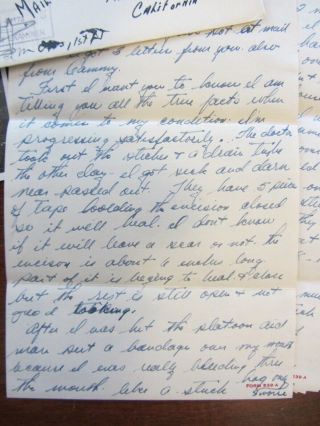 California
Mail
1st Lt
not at mail
got 3 letters from you. also
from Cammy.
First I want you to know I am
telling you all the true facts when
it comes to my condition. I'm
progressing satisfactorily. The doctor
took out the stiches + a drain tube
the other day. I got sick and darn
near passed out. They have 5 pieces
of tape holding the incision closed
so it will heal. I don't know
if it will leave a scar or not. the
incison is about 6 inches long
part of it is beging to heal + close
but the rest is still open + not
good looking.
After I was hit the platoon aid
man put a bandage over my
because I was really bleeding thru
the mouth like a stuck hog my
FORM 539-A
539-A